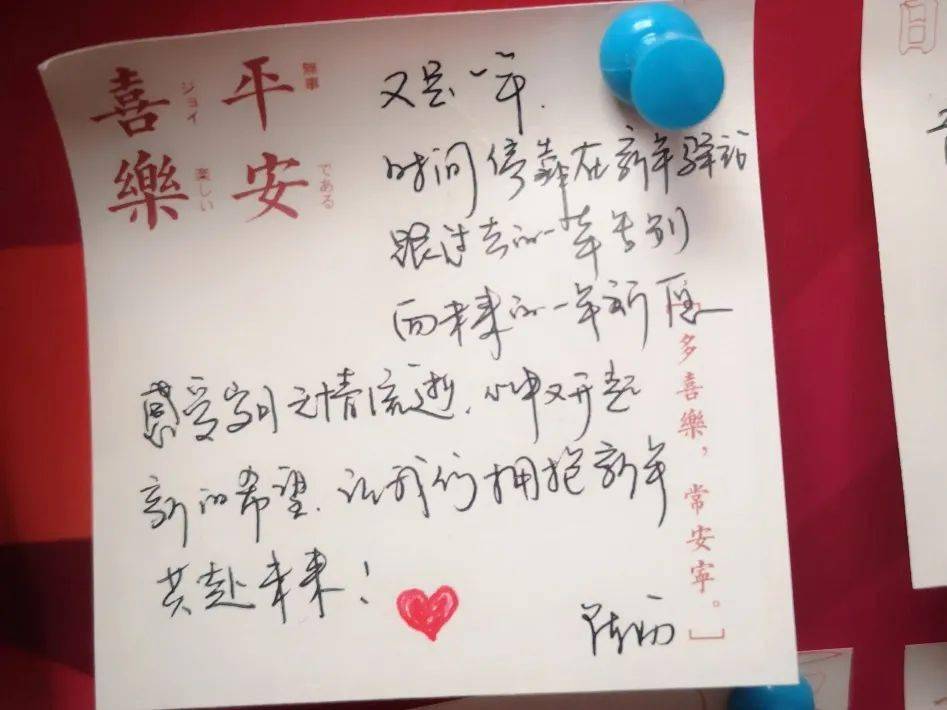 喜樂
平安
ジョイ
楽しい
無事
である
又是一年.
时间停靠在新年驿站
跟过去的一年告别
而未来的一年新
感受岁月无情流逝.心中又升起
新的希望.让我们拥抱新年
共赴未来！
多喜樂，常安寧。
日